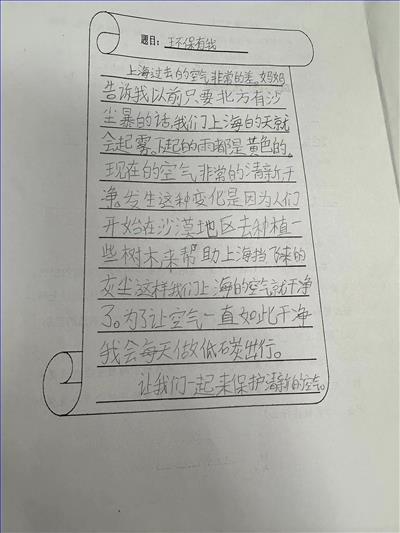 题目：环保有我
上海过去的空气非常的差。妈妈
告诉我以前只要北方有沙
尘暴的话，我们上海的天就
会起雾。下起的雨都是黄色的。
现在的空气非常的清新干
净。发生这种变化是因为人们
开始在沙漠地区去种植一
些树木来帮助上海挡下来的
灰尘这样我们上海的空气就干净
了。为了让空气一直如此干净
我会每天做低碳出行。
让我们一起来保护清新的空气。